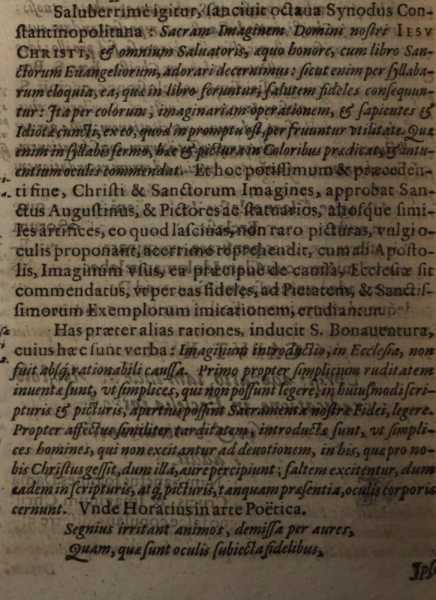 Saluberrimè igitur, sanciuit octaua Synodus Con-
stantinopolitana: Sacram Imaginem Domini nostri IESV
CHRISTI, & omnium Saluatoris, æquo honore, cum libro San-
ctorum Euangeliorum, adorari decernimus: sicut enim per syllaba-
rum eloquia, ea, quæ in libro feruntur, salutem fideles consequun-
tur: Ita per colorum, imaginariam operationem, & sapientes &
Idiotæ cuncti, ex eo, quod in promptu est, perfruuntur vtilitate. Quæ
enim in syllabis sermo, hæc & pictura in Coloribus prædicat, &
oculis commendat. Et hoc potissimùm & præceden-
ti fine, Christi & Sanctorum Imagines, approbat San-
ctus Augustinus, & Pictores ac statuarios, aliosque simi-
les artifices, eo quod lasciuas, non raro picturas, vulgi o-
culis proponant, acerrimè reprehendit, cum ab Aposto-
lis, Imaginum vsus, ea præcipuè de caussa, Ecclesiæ sit
commendatus, vt per eas fideles, ad Pietatem, & Sanctis-
simorum Exemplorum imitationem, erudiantur.
Has præter alias rationes, inducit S. Bonauentura,
cuius hæc sunt verba: Imaginum introductio, in Ecclesia, non
fuit absq; rationabili caussa. Primo propter simplicium ruditatem
inuentæ sunt, vt simplices, qui non possunt legere, in huiusmodi scri-
pturis & picturis, apertiùs possint Sacramenta nostræ Fidei, legere.
Propter affectus similiter tarditatem, introductæ sunt, vt simpli-
ces homines, qui non excitantur ad deuotionem, in his, quæ pro no-
bis Christus gessit, dum illa, aure percipiunt; saltem excitentur, dum
eadem in scripturis, atq; picturis, tanquam præsentia, oculis corporis
cernunt. Vnde Horatius in arte Poëtica.
Segnius irritant animos, demissa per aures,
Quàm, quæ sunt oculis subiecta fidelibus,
Ipse